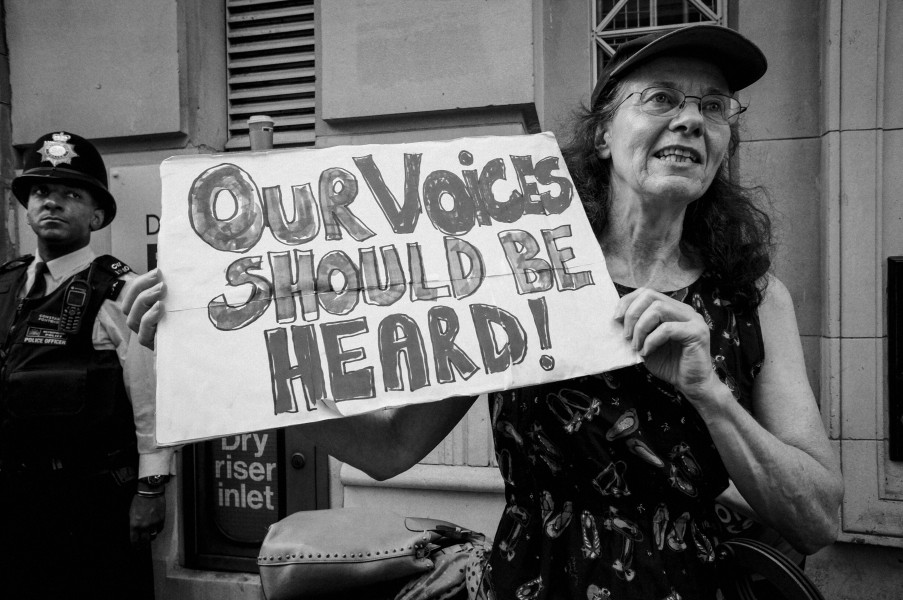 OUR VOICES
SHOULD BE
HEARD!
POLICE OFFICER
D
Dry
riser
inlet